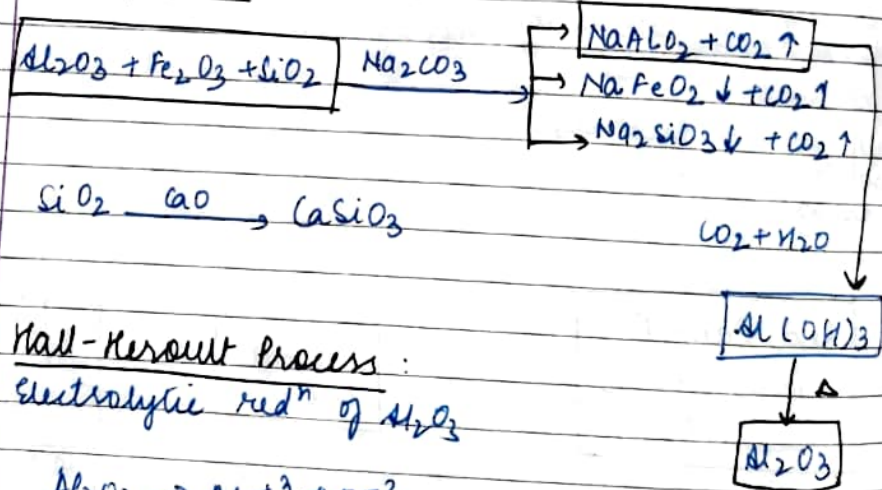 Al2O3 + Fe2O3 + SiO2 Na2CO3 → NaAlO2 + CO2 ↑
→ NaFeO2 ↓ + CO2 ↑
→ Na2SiO3 ↓ + CO2 ↑
SiO2 CaO → CaSiO3
CO2 + H2O
Al(OH)3
Hall-Heroult Process :
Δ
Electrolytic redⁿ of Al2O3
Al2O3